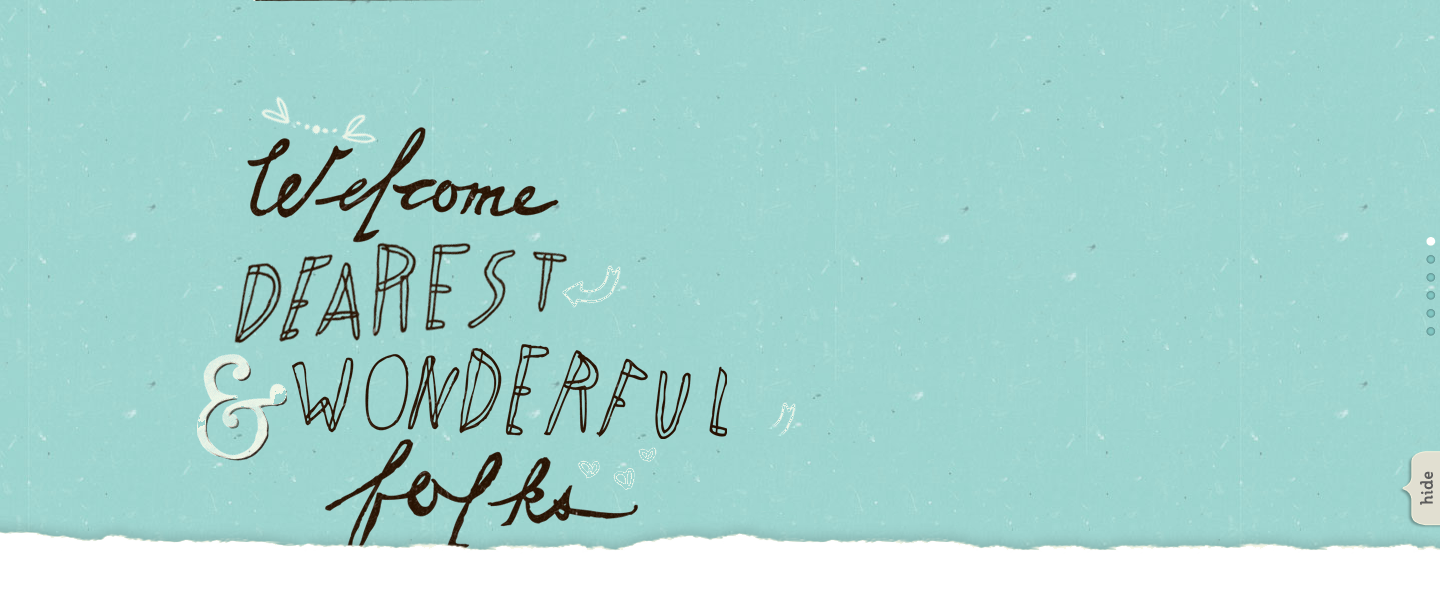 Welcome
DEAREST
& WONDERFUL
folks
hide